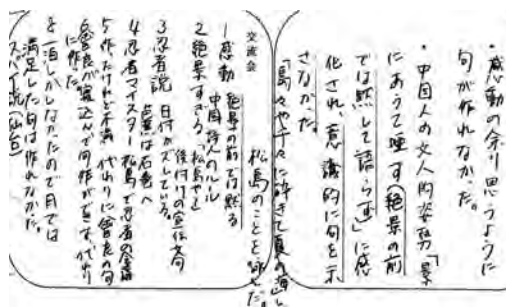 ・感動の余り思うように
句が作れなかった。
・中国人の文人的姿勢「景
にあうて唖す(絶景の前
では黙して語らず)」に感
化され、意識的に句を示
さなかった。
「島々や千々に砕きて夏の海」
松島のことを詠んだ。
交流会
1 感動 絶景の前では黙る
中国 詩人のルール
2 絶景すぎる、「松島やと
後付けの宣伝文句
3 忍者説 日付がズレている。
点黒は石巻へ
4 忍者マイスター 松島で忍者の会議
5 作ったけれど不満 代わりに曾良の句
6 曾良が寝込んで句作ができず、代わり
に作った。
8 一泊しかしなかったので月では
満足した句は作れなかった。
スパイ説(仙台)